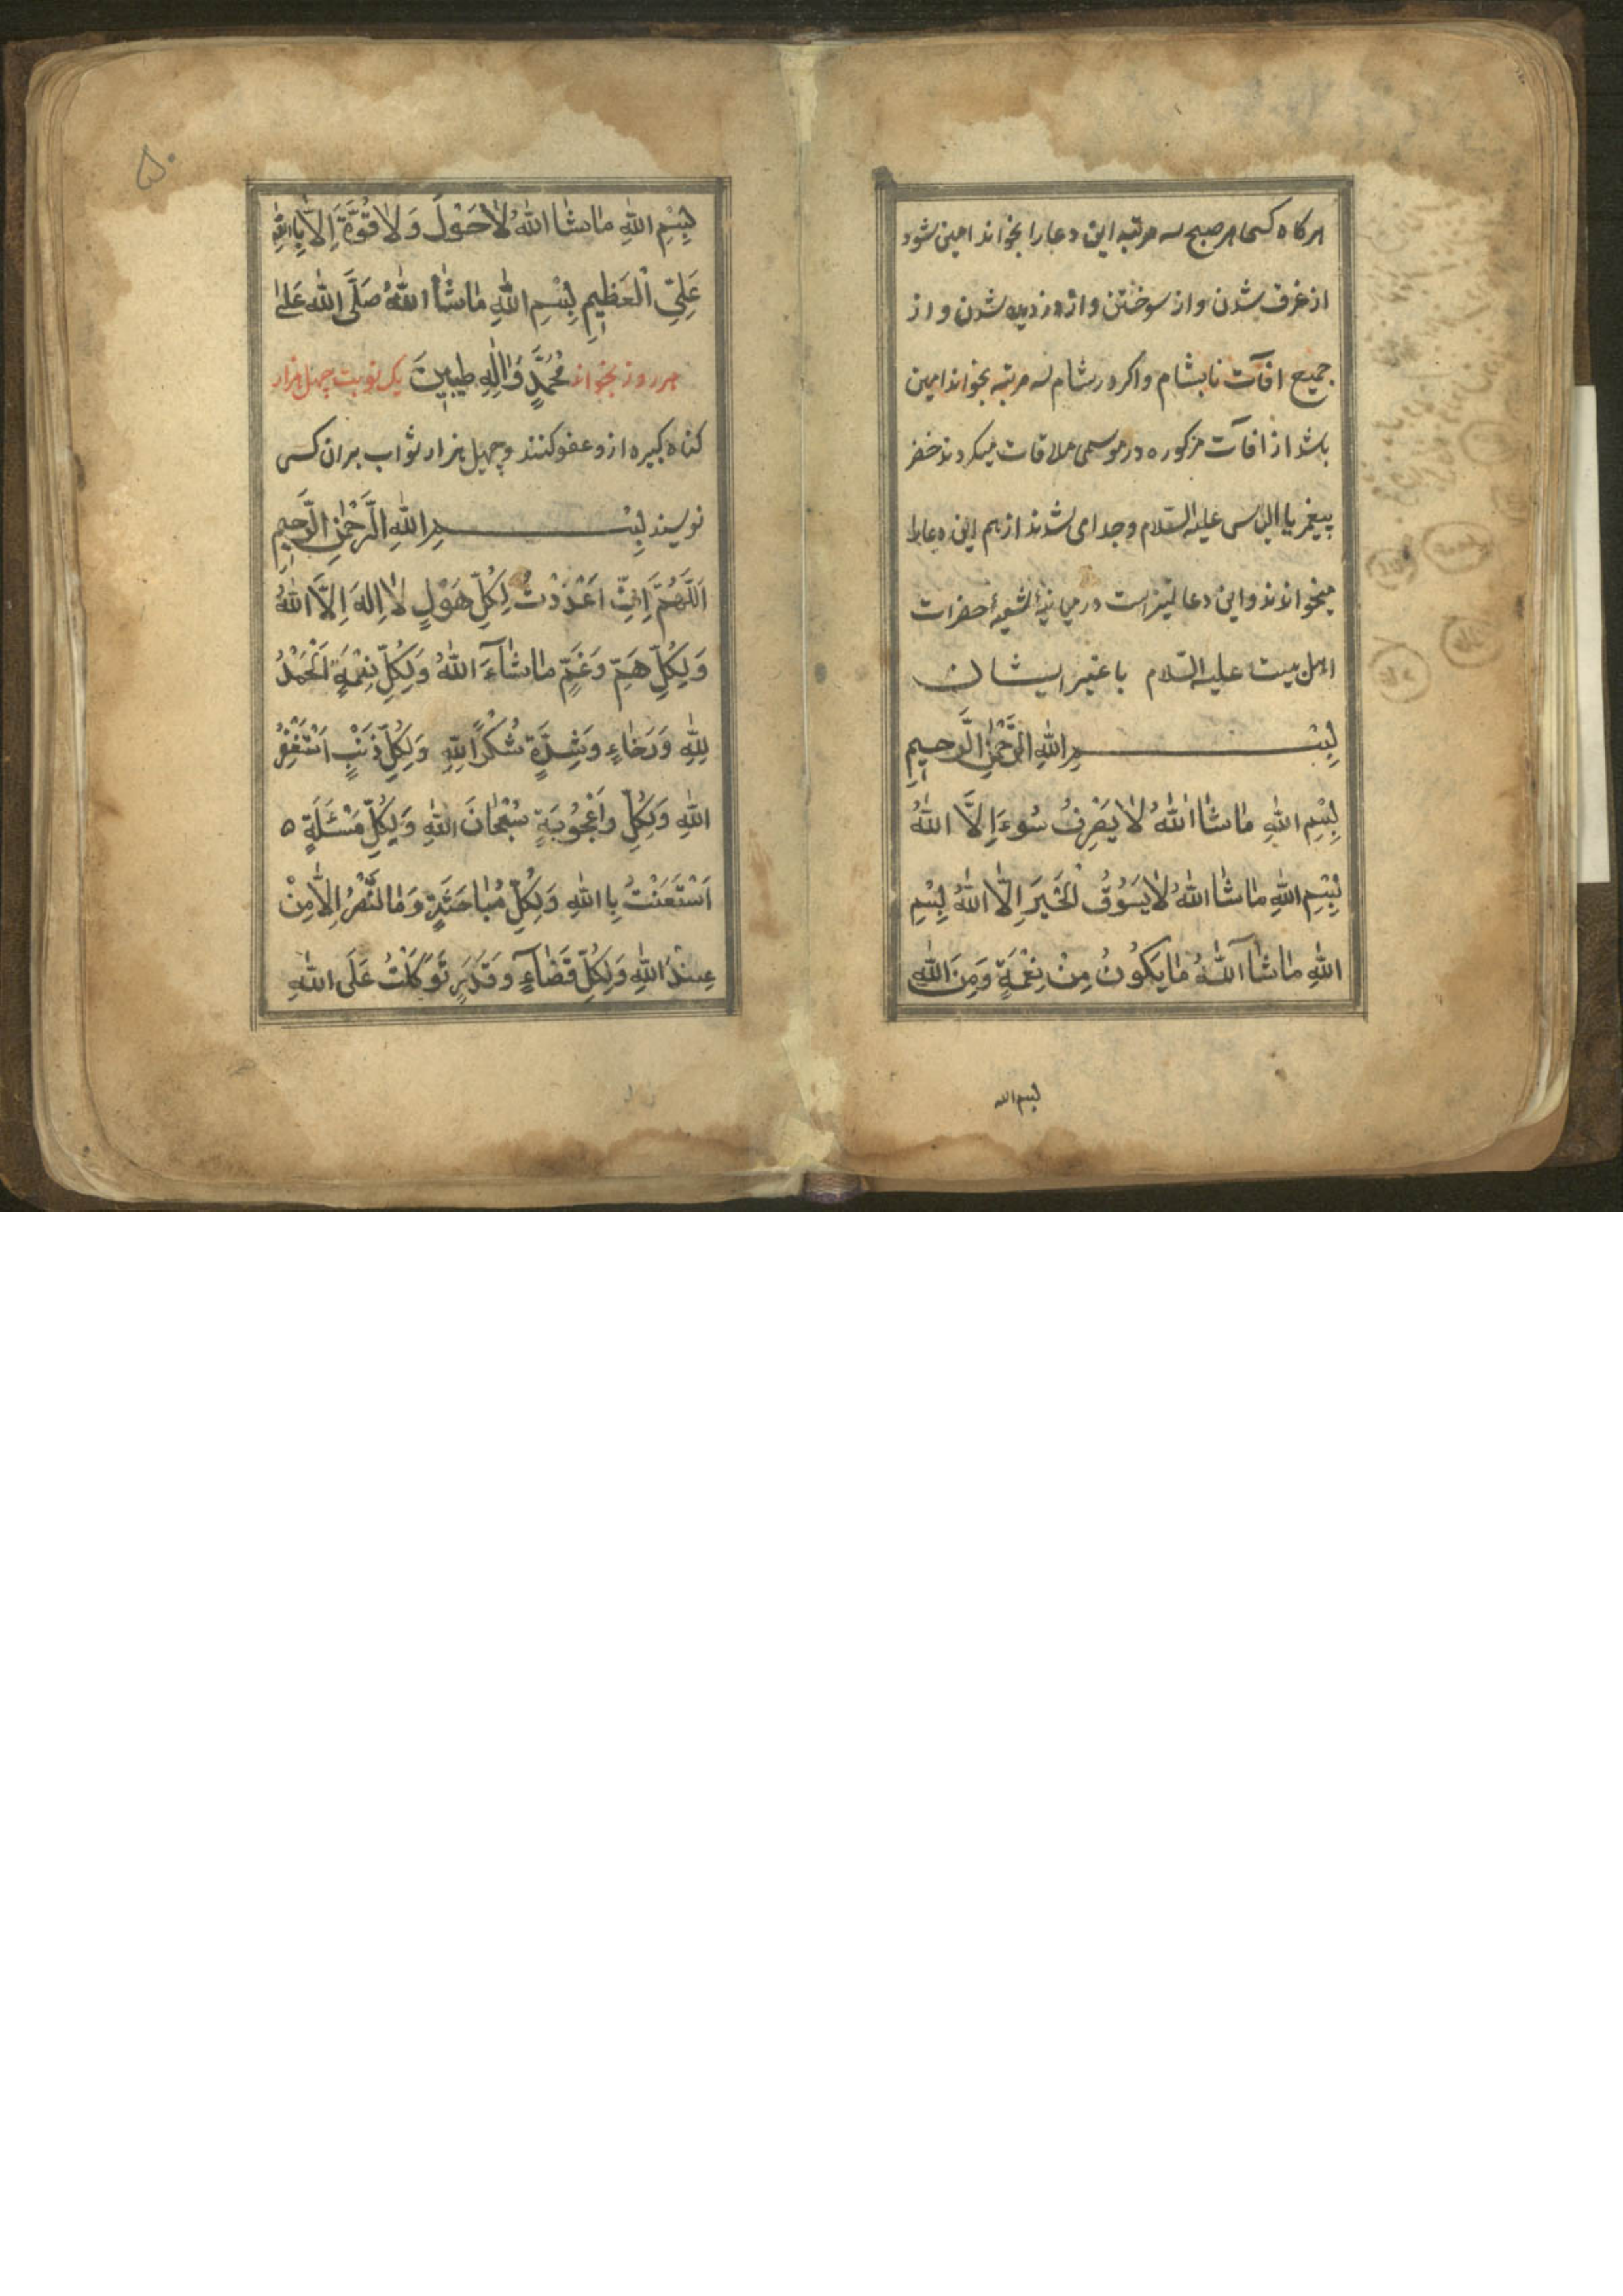 هرکاه کسی هر صبح سه مرتبه این دعا را بخواند امین شود
از غرق شدن و از سوختن و از دزدیده شدن و از
جمیع افآت تا بشام و اکر در شام سه مرتبه بخواند امین
باشد از افآت مزکوره در موسمی ملاقات میکردند خضر
پیغمبر با الیاس علیه السّلام و جدا می شدند از هم این دعا را
میخواندند و این دعا نیز است در میانهٔ شیعهٔ حضرات
اهل بیت علیه السّلام با غیر ایشان
بِسْمِ اللّٰهِ الرَّحْمٰنِ الرَّحیمِ
بِسْمِ اللّٰهِ مٰاشٰا اللّٰهُ لاٰ یَصْرِفُ سُوءَ اِلَّا اللّٰهُ
بِسْمِ اللّٰهِ مٰاشٰا اللّٰهُ لاٰیَسُوُقُ الْخَیرَ اِلاَّ اللّٰهُ بِسْمِ
اللّٰهِ مٰاشٰا اللّٰهُ مٰایَکُونُ مِنْ نِعْمَةٍ وَمِنَ اللّٰهِ
بسم الله
۵۰
بِسْمِ اللّٰهِ مٰاشٰا اللّٰهُ لاٰحَوْلَ وَلاٰ قُوَّةَ اِلاَّ بِا اللّٰهِ
عَلِیِّ الْعَظیمِ بِسْمِ اللّٰهِ مٰاشٰا اللّٰهُ صَلَّی اللّٰه عَلیٰ
مُحَمَّدٍ وَاٰلِهِ طیبین هر روز بخواند یک نوبت چهل هزار
کناه کبیره از و عفو کنند و چهیل هزار ثواب بر ان کسی
نویسند بِسْمِ اللّٰهِ الرَّحْمٰنِ الرَّحیمِ
اَللّٰهُمَّ اِنّی اَعْدَدْتُ لِکُلِّ هَوْلٍ لاٰ اِلهَ اِلاَّ اللّٰهُ
وَلِکُلِّ هَمٍّ وَغَمٍّ مٰاشٰآءَ اللّٰهُ وَلِکُلِّ نِعْمَةٍ اَلْحَمْدُ
لِلّٰهِ وَرَخٰاءٍ وَشِدَّةٍ شُکْرًا لِلّٰهِ وَلِکُلِّ ذَنْبٍ اَسْتَغْفِرُ
اللّٰهِ وَلِکُلِّ وَاُعْجُوبَةٍ سُبْحٰانَ اللّٰهِ وَلِکُلِّ مَسْئَلَةٍ ه
اَسْتَعَنْتُ بِا اللّٰهِ وَلِکُلِّ مُبٰاحَثَةٍ وَمَا النَّصْرُ اِلاّٰ مِنْ
عِنْدَ اللّٰهِ وَلِکُلِّ قَضٰآءٍ وَ قَدَرٍ تَوَکَّلْتُ عَلَی اللّٰهِ